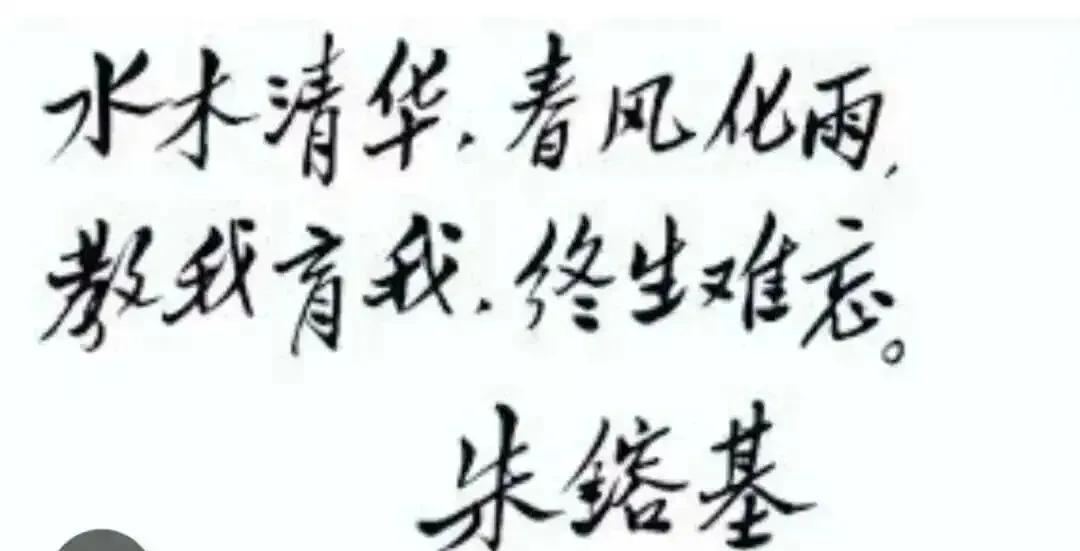 水木清华，春风化雨，
教我育我，终生难忘。
朱镕基